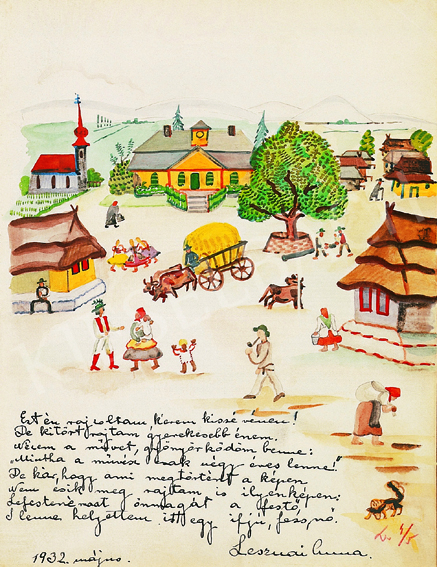 Ezt én rajzoltam kérem kissé vénen!
De kitört rajtam gyerekesebb énem.
Nézem a művet, gyönyörködöm benne:
"Mintha a művész csak négy éves lenne!"
De kár, hogy ami megtörtént a képen
Nem esik meg rajtam is ilyenképen:
Lefestené az önmagát a festő,
S lenne helyettem itt egy ifjú, fess nő.
Lesznai Anna.
1932. május.